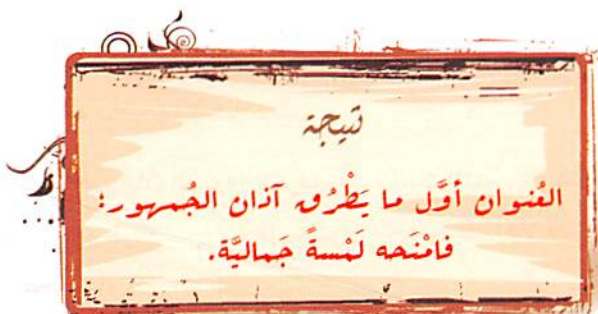 نتيجة
العُنوان أوَّل ما يَطْرُق آذان الجُمهور؛
فامْنَحه لَمْسةً جَماليَّة.